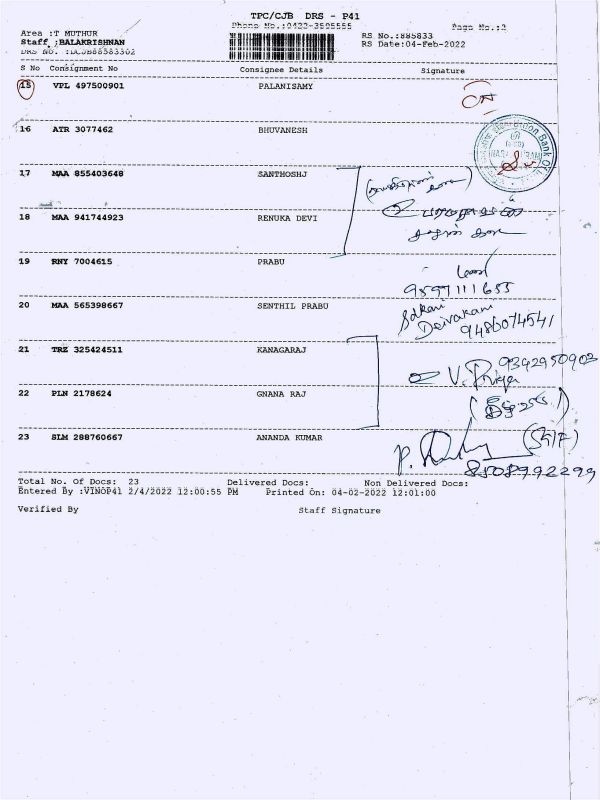 TPC/CJB DRS - P41
Area :T MUTHUR
Phone No.:0422-3595555
Page No.:3
Staff :BALAKRISHNAN
RS No.:885833
RS Date:04-Feb-2022
S No Consignment No Consignee Details Signature
15 VPL 497500901 PALANISAMY
16 ATR 3077462 BHUVANESH
17 MAA 855403648 SANTHOSHJ
18 MAA 941744923 RENUKA DEVI
19 RNY 7004615 PRABU
9597111655
20 MAA 565398667 SENTHIL PRABU
Deivakani
9486074541
21 TRZ 325424511 KANAGARAJ
9342950903
V. Priya
22 PLN 2178624 GNANA RAJ
23 SLM 288760667 ANANDA KUMAR
8508992299
Total No. Of Docs: 23 Delivered Docs: Non Delivered Docs:
Entered By :VINOP41 2/4/2022 12:00:55 PM Printed On: 04-02-2022 12:01:00
Verified By Staff Signature